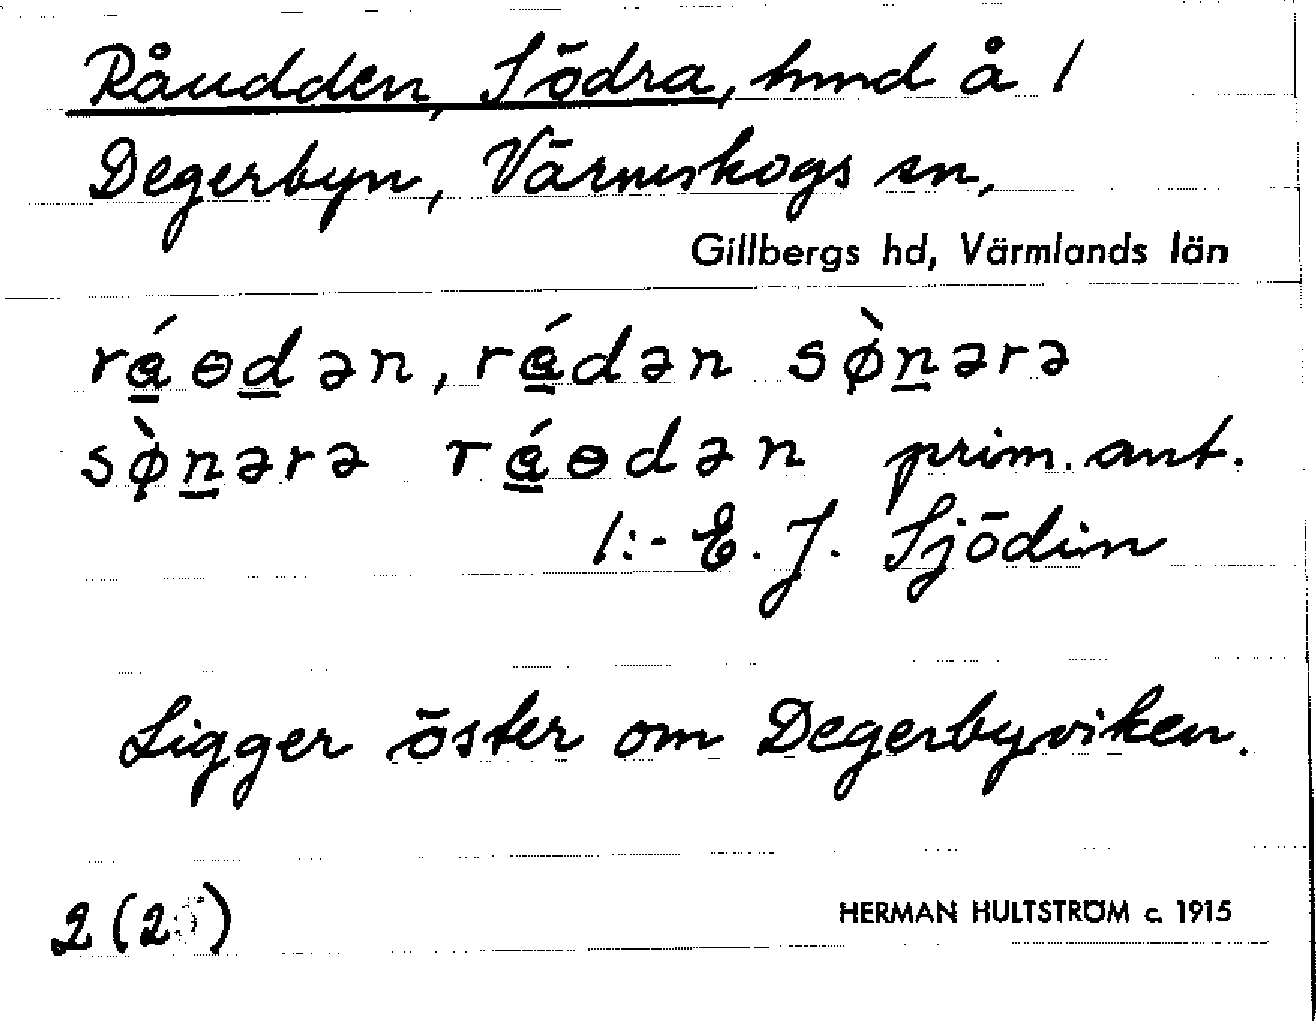 Råudden, Södra, hmd å 1
Degerbyn, Värmskogs sn,
Gillbergs hd, Värmlands län
rá̱ɵḏən, rá̱dən sø̀ṉərə
sø̀ṉərə rá̱ɵdən prim. ant.
1:- E. J. Sjödin
Ligger öster om Degerbyviken.
2 (25)
HERMAN HULTSTRÖM c. 1915